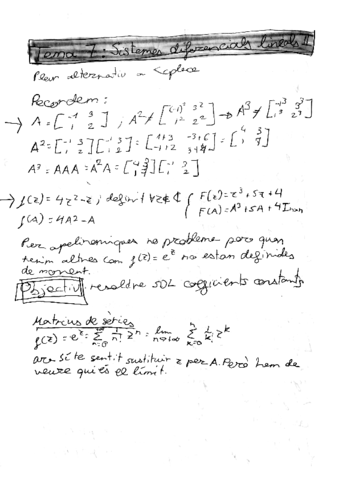 Tema 7: Sistemes diferencials lineals I
Plan alternatiu a Laplace
Recordem:
→ A = [-1 3; 1 2] ; A² ≠ [(-1)² 3²; 1² 2²] → A³ ≠ [-1³ 3³; 1³ 2³]
A² = [-1 3; 1 2][-1 3; 1 2] = [1+3 -3+6; -1+2 3+4] = [4 3; 1 7]
A³ = AAA = A²A = [4 3; 1 7][-1 3; 1 2]
→ f(z) = 4z²-z ; definit ∀z∈ℂ { F(z) = z³+5z+4
f(A) = 4A²-A F(A) = A³+5A+4I
Per a polinomiques no problema pero quan
tenim altres com f(z) = e^z no estan definides
de moment.
Objectiu: resoldre SDL coeficients constants
Matrius de sèries
f(z) = e^z = Σ 1/n! z^n = lim Σ 1/k! z^k
ara sí te sentit sustituir z per A. Però hem de
veure qui és el límit.